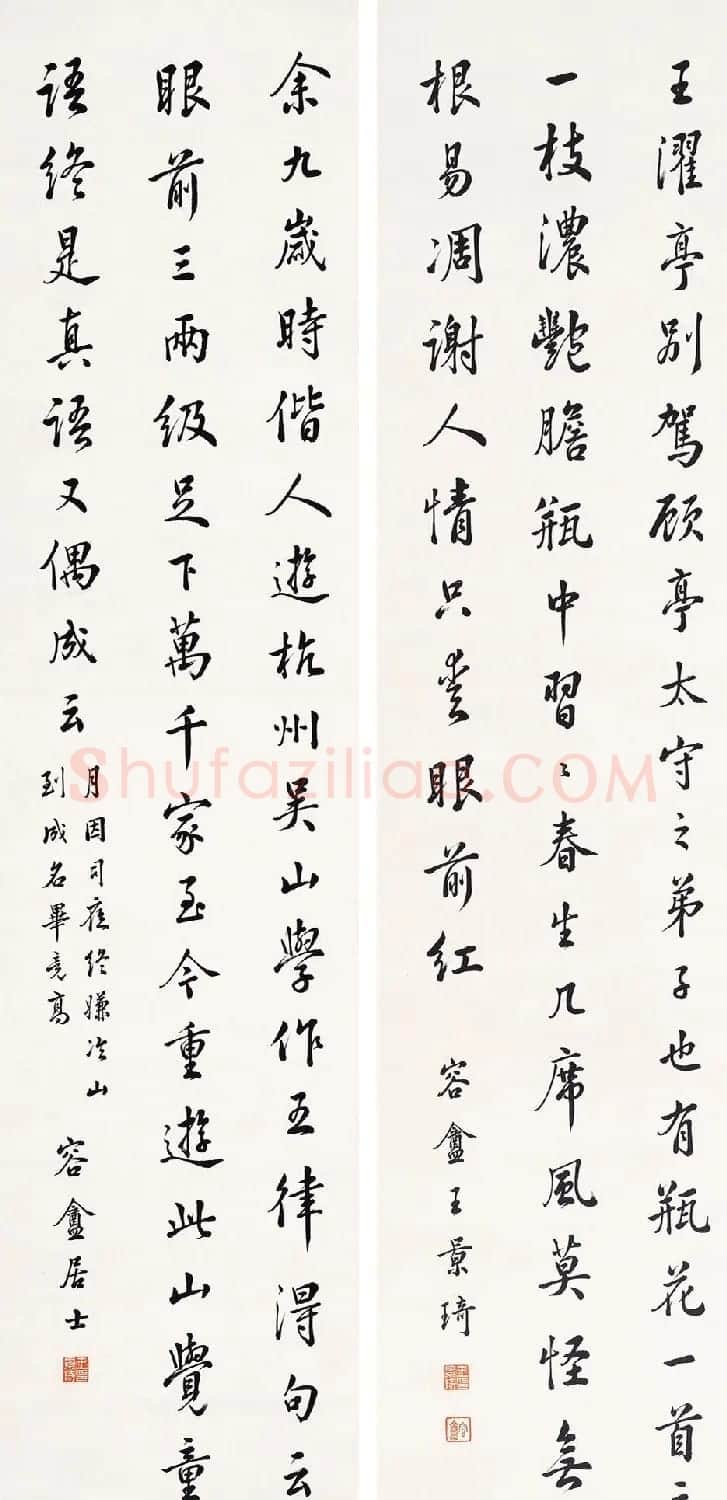 王濯亭别駕顾亭太守之弟子也有瓶花一首云
一枝濃艷膽瓶中習〻春生几席風莫怪無
根易凋谢人情只愛眼前紅
容盦王景琦
余九歲時偕人遊杭州吴山學作五律得句云
眼前三兩级足下萬千家至今重遊此山覺童
語終是真語又偶成云
月因司夜终嫌冷山
到成名畢竟高
容盦居士
Shufaziliao.COM